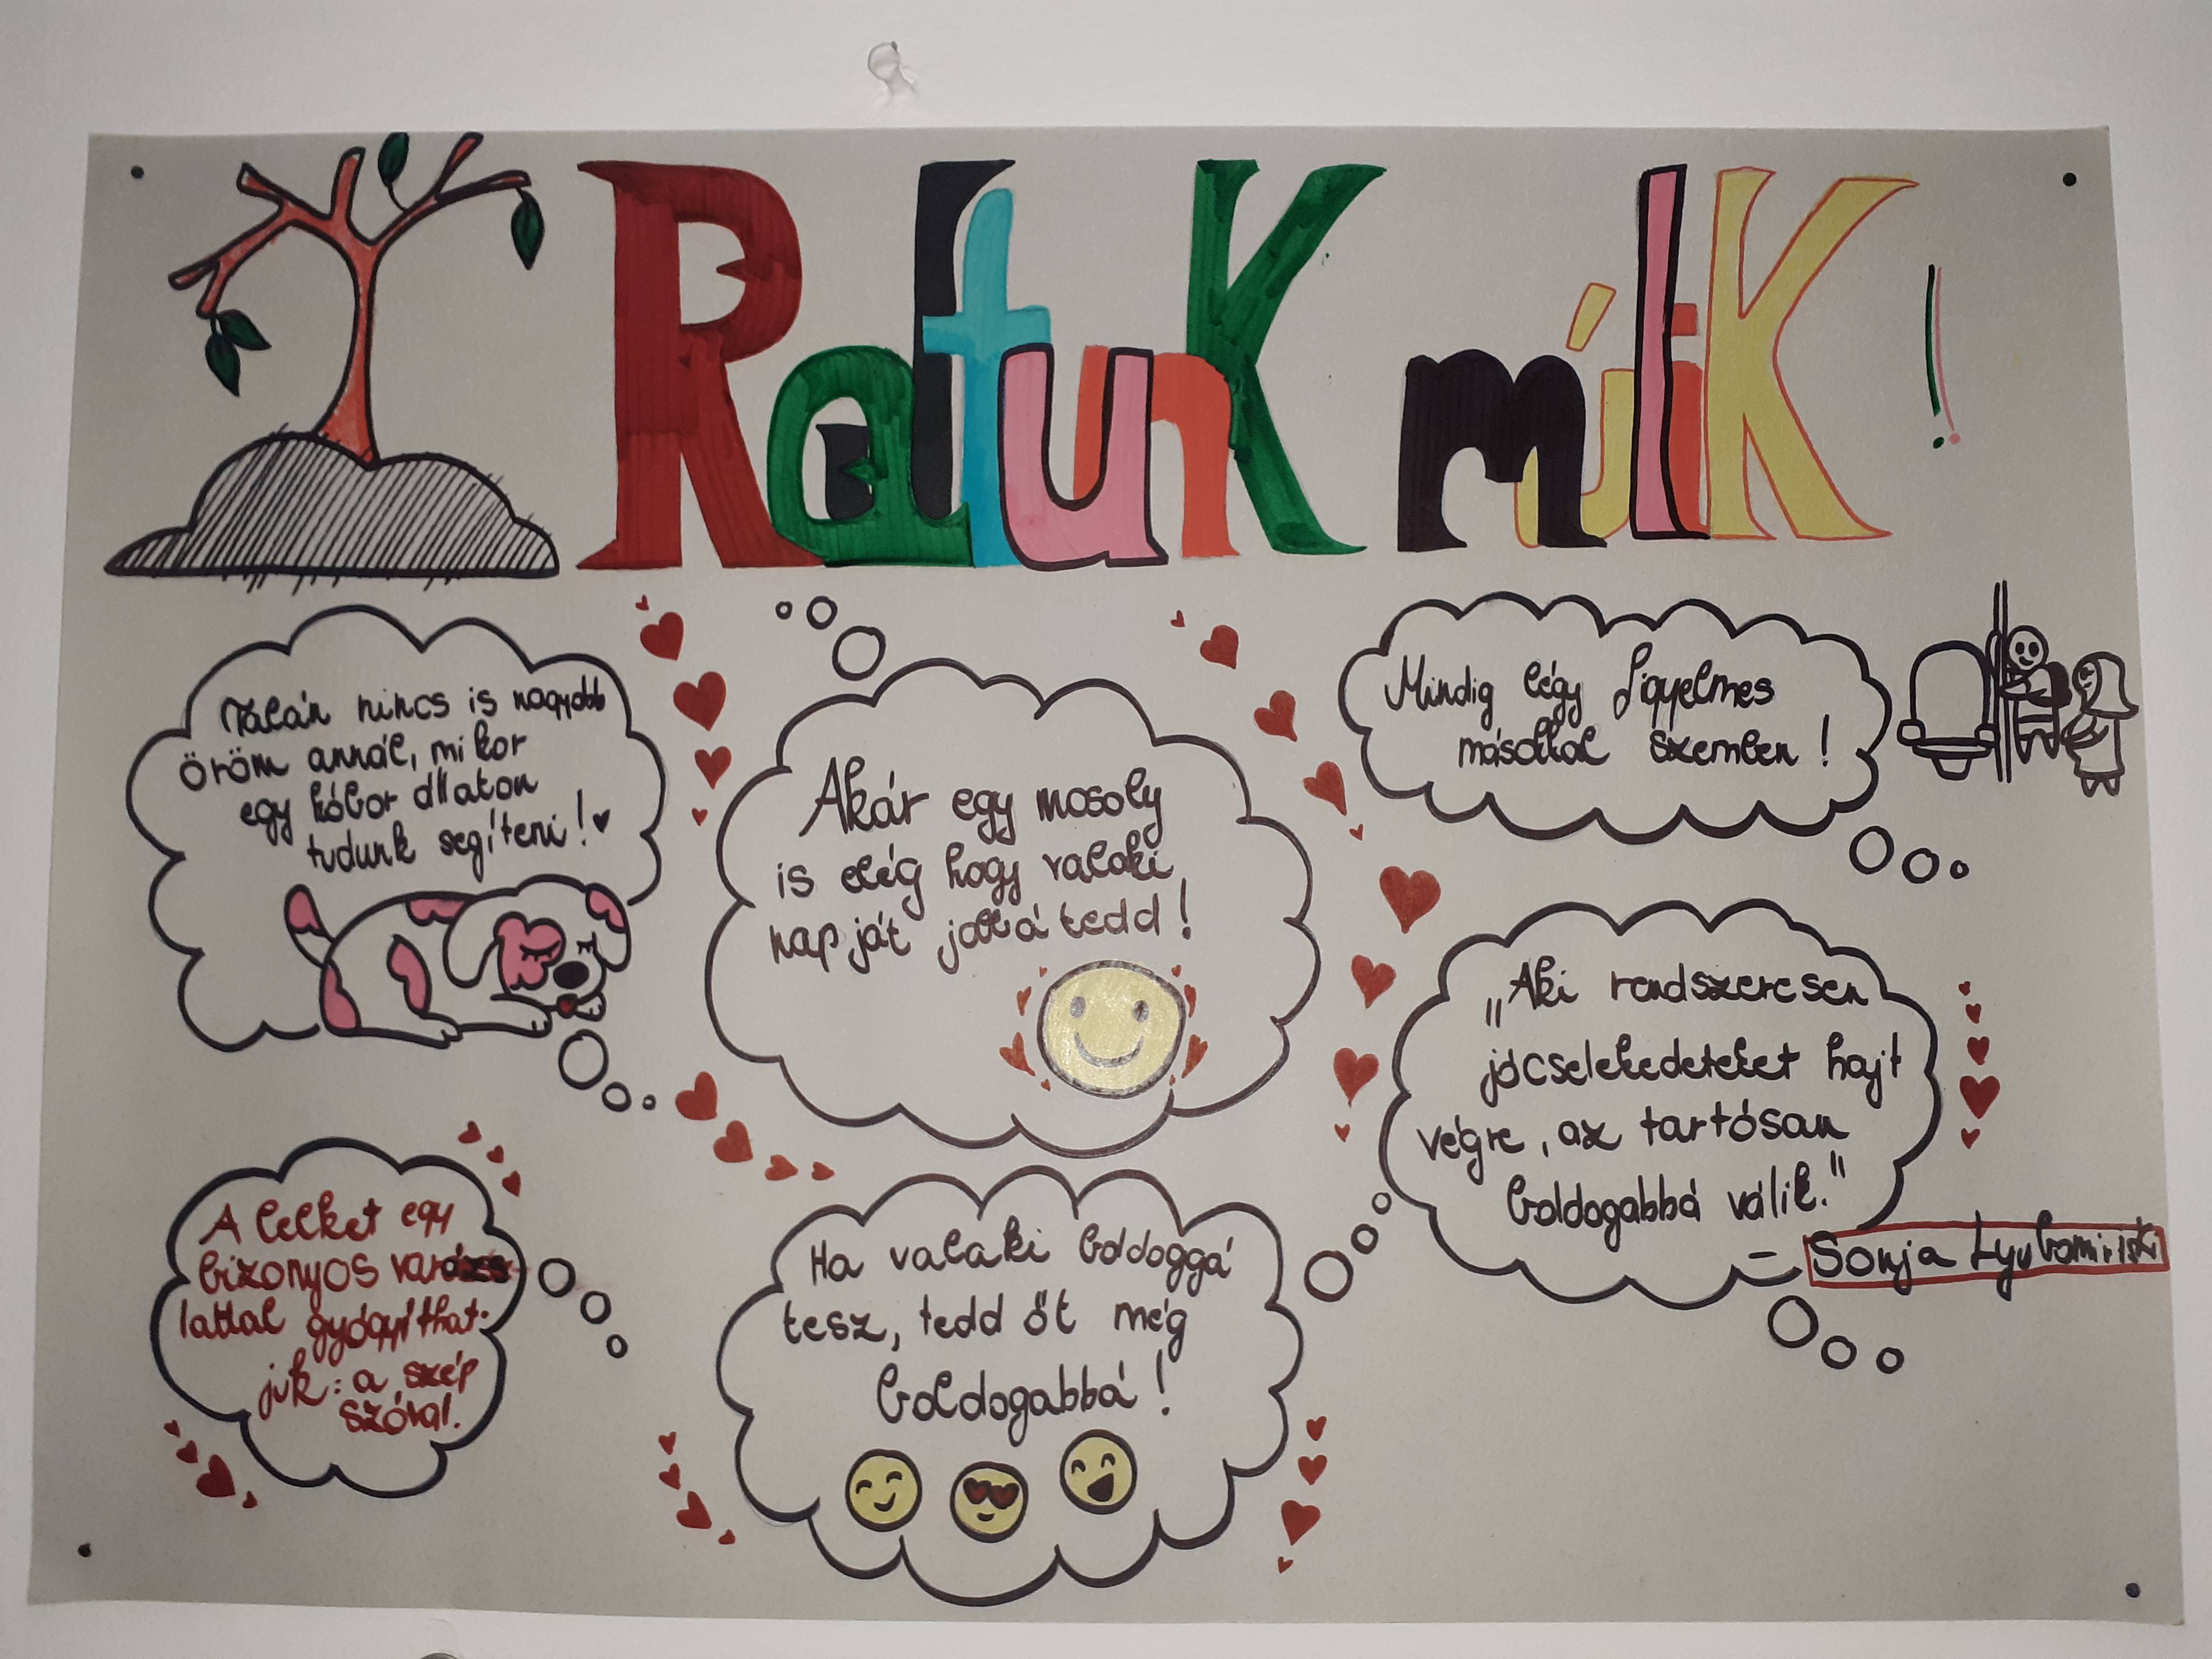 Rajtunk múlik!
Talán nincs is nagyobb
öröm annál, mikor
egy kóbor állaton
tudunk segíteni!
Akár egy mosoly
is elég hogy valaki
napját jobbá tedd!
Mindig légy figyelmes
másokkal szemben!
„Aki rendszeresen
jócselekedeteket hajt
végre, az tartósan
boldogabbá válik."
- Sonja Lyubomirski
A lelket egy
bizonyos varázs
lattal gyógyíthat-
juk: a szép
szóval.
Ha valaki boldoggá
tesz, tedd őt még
boldogabbá!